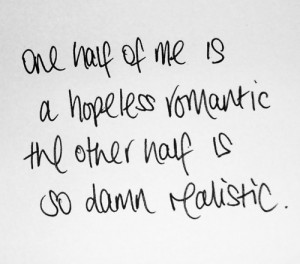 one half of me is
a hopeless romantic
the other half is
so damn realistic.